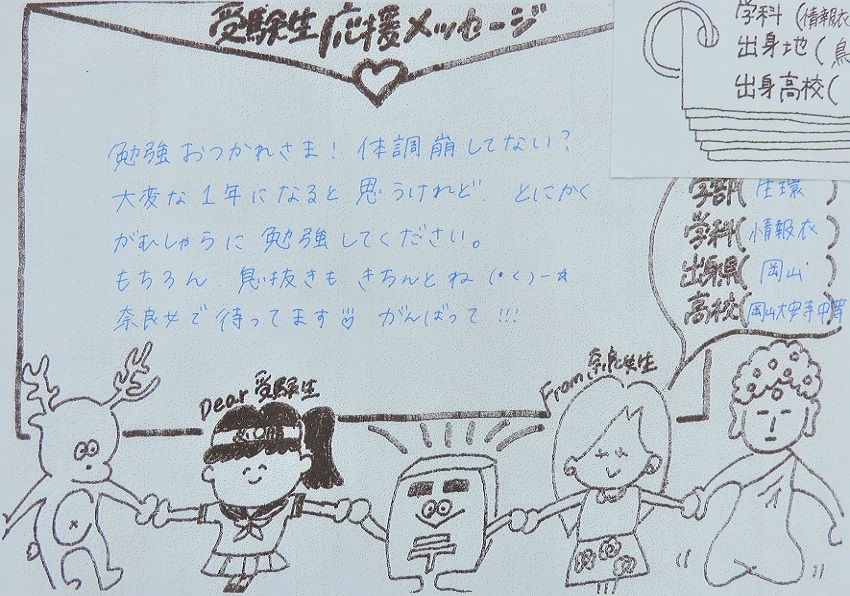 受験生応援メッセージ
学科(情報衣
出身地(鳥
出身高校(
勉強おつかれさま!体調崩してない?
大変な1年になると思うけれど、とにかく
がむしゃらに勉強してください。
もちろん 息抜きもきちんとね(・く)ー☆
奈良女で待ってます がんばって!!!
学部(生環)
学科(情報衣)
出身県(岡山)
高校(岡山大安寺中等
Dear 受験生
From 奈良女生
必〇勝
〒